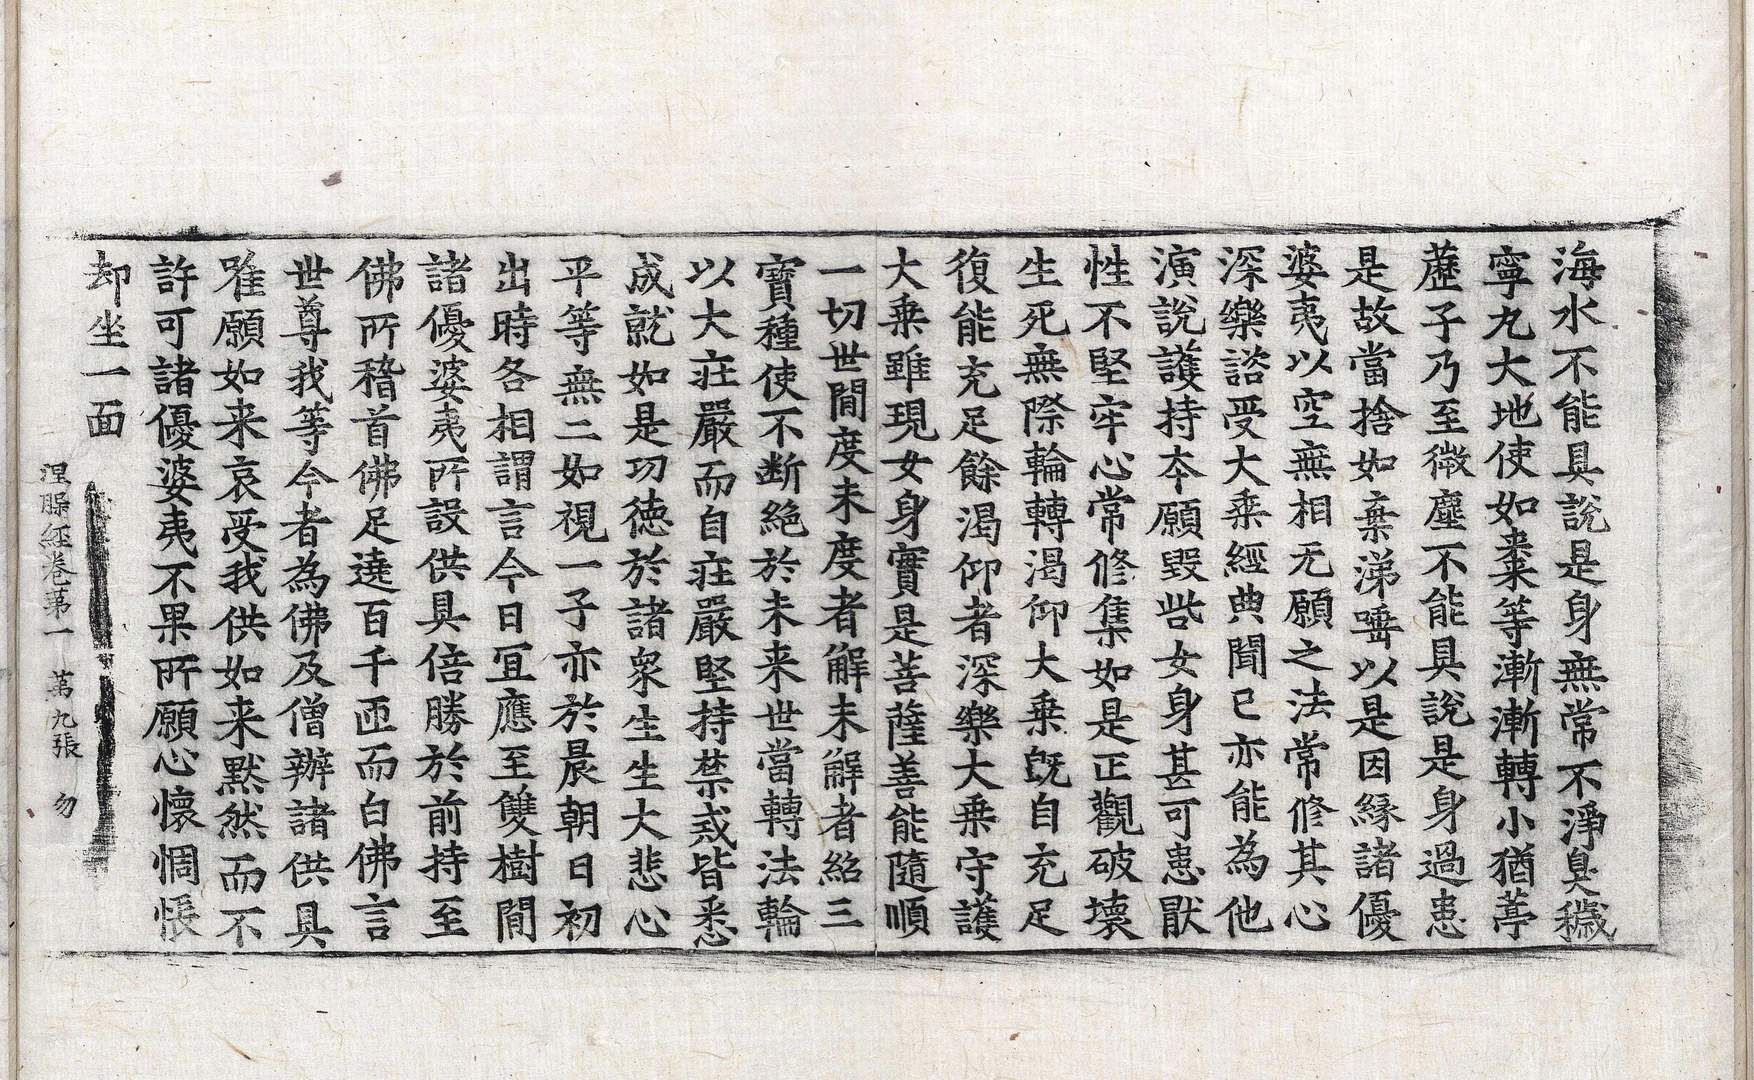 海水不能具說是身無常不淨臭穢
寧丸大地使如来棗等漸漸轉小猶葶
藶子乃至微塵不能具說是身過患
是故當捨如棄涕唾以是因緣諸優
婆夷以空無相无願之法常修其心
深樂諮受大乗經典聞已亦能為他
演說護持本願毀呰女身甚可患厭
性不堅牢心常修集如是正觀破壞
生死無際輪轉渴仰大乗既自充足
復能充足餘渴仰者深樂大乗守護
大乗雖現女身實是菩薩善能隨順
一切世間度未度者解未解者紹三
寶種使不断絶於未来世當轉法輪
以大莊嚴而自莊嚴堅持禁戒皆悉
成就如是功德於諸衆生生大悲心
平等無二如視一子亦於晨朝日初
出時各相謂言今日宜應至雙樹間
諸優婆夷所設供具倍勝於前持至
佛所稽首佛足遶百千匝而白佛言
世尊我等今者為佛及僧辦諸供具
唯願如来哀受我供如来默然而不
許可諸優婆夷不果所願心懷惆悵
却坐一面
涅槃経卷第一 第九張 勿